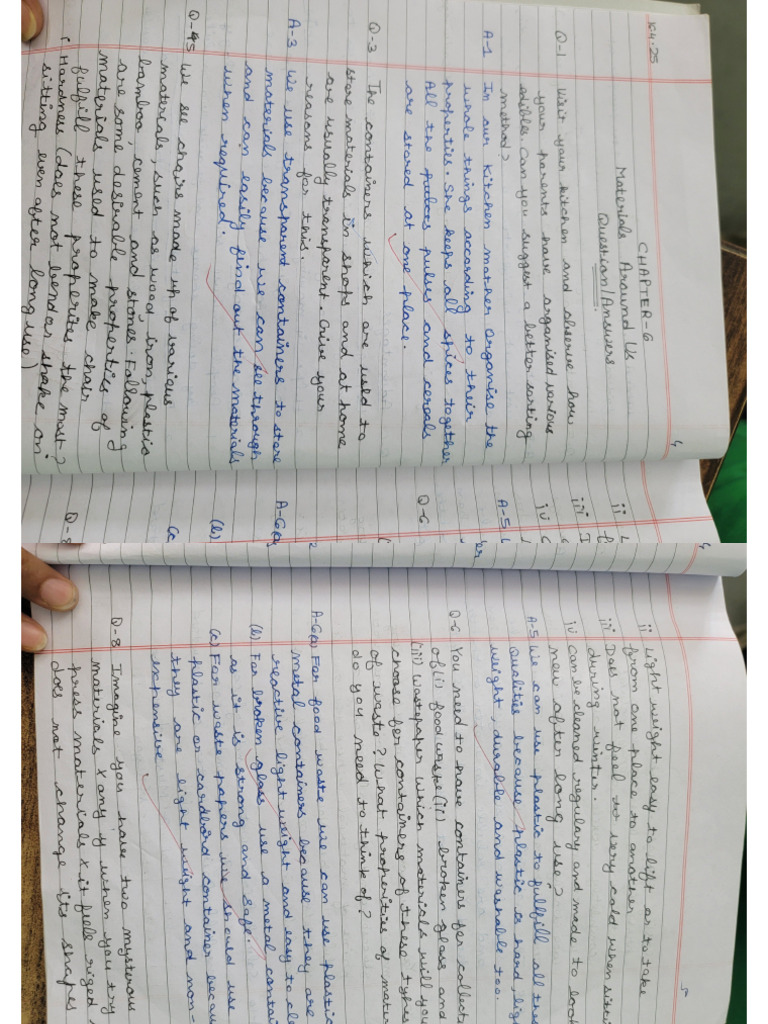 10.4.25
CHAPTER-6
Materials Around Us
Question/Answers
Q-1 Visit your kitchen and observe how
your parents have organised various
edibles. Can you suggest a better sorting
method?
A-1 In our kitchen mother organise the
whole things according to their
properties. She keeps all spices together
All the pulses and cereals
are stored at one place.
Q.3 The containers which are used to
store materials in shops and at home
are usually transparent. Give your
reasons for this.
A-3 We use transparent containers to store
materials because we can see through
and can easily find out the materials
when required.
Q-5 We see chairs made up of various
materials, such as wood, iron, plastic
bamboo, cement and stones. Following
are some desirable properties of
materials used to make chair
fulfill these properites the most?
i Hardness (does not bend or shake on
sitting even after long use)
4
ii Light weight easy to lift or to take
from one place to another
iii Does not feel very cold when
during winter.
iv Can be cleaned regulary and made to look
new after long use?
A-5 We can use plastic to fullfill all the
qualities because plastic is hard,
weight, durable and washable too.
Q-6 You need to have containers for
of (i) food waste (ii) broken glass and
(iii) wastepaper which materials will you
choose for containers of these types
of waste? What properities of
do you need to think of?
A-6(a) For food waste we can use plastic
metal containers because they are
reactive light weight and easy to
(b) For broken glass use a metal
as it is strong and safe.
(c) For waste papers we should use
plastic or cardbord container
they are light weight and non-
expensive
Q-8 Imagine you have two mysterous
materials x any y when you try
press materials x it feels riged
does not change its shapes
5